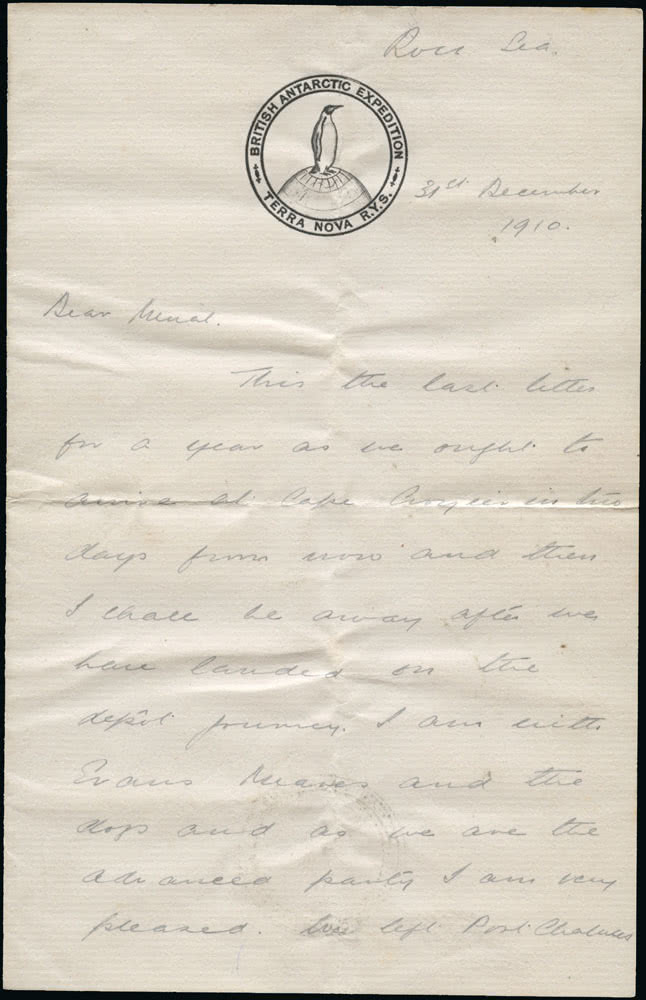 Ross Sea.
BRITISH ANTARCTIC EXPEDITION
TERRA NOVA R.Y.S.
31st December
1910.
Dear
This the last letter
for a year as we ought to
arrive at Cape Crozier in two
days from now and then
I shall be away after we
have landed on the
depôt journey. I am with
Evans Meares and the
dogs and as we are the
advanced party I am very
pleased. We left Port Chalmers